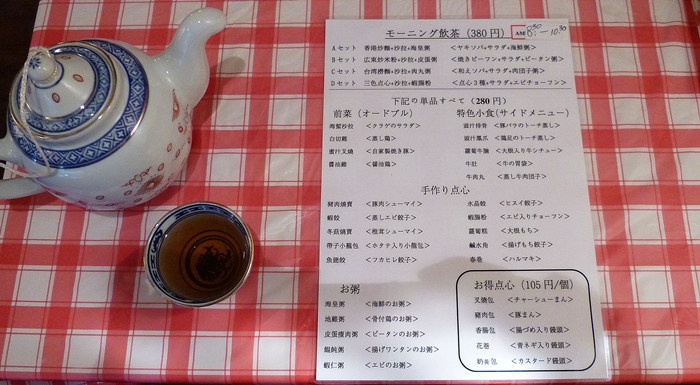 モーニング飲茶（380円） AM 8:30-10:30
Aセット 香港炒麵+沙拉+海皇粥 <ヤキソバ+サラダ+海鮮粥>
Bセット 広東炒米粉+沙拉+皮蛋粥 <焼きビーフン+サラダ+ピータン粥>
Cセット 台湾撈麵+沙拉+肉丸粥 <和えソバ+サラダ+肉団子粥>
Dセット 三色点心+沙拉+蝦腸粉 <点心3種+サラダ+エビチョーフン>
下記の単品すべて（280円）
前菜（オードブル） 特色小食(サイドメニュー)
海蜇沙拉 <クラゲのサラダ> 豉汁排骨 <豚バラのトーチ蒸し>
白切鶏 <蒸し鶏> 豉汁鳳爪 <鶏足のトーチ蒸し>
蜜汁叉焼 <自家製焼き豚> 蘿蔔牛腩 <大根入り牛シチュー>
醤油鶏 <醤油鶏> 牛肚 <牛の胃袋>
牛肉丸 <蒸し牛肉団子>
手作り点心
豬肉焼賣 <豚肉シューマイ> 水晶餃 <ヒスイ餃子>
蝦餃 <蒸しエビ餃子> 蝦腸粉 <エビ入りチョーフン>
冬菇焼賣 <椎茸シューマイ> 蘿蔔糕 <大根もち>
帶子小龍包 <ホタテ入り小龍包> 鹹水角 <揚げもち餃子>
魚翅餃 <フカヒレ餃子> 春巻 <ハルマキ>
お粥
海皇粥 <海鮮のお粥>
地鶏粥 <骨付鶏のお粥>
皮蛋痩肉粥 <ピータンのお粥>
餛飩粥 <揚げワンタンのお粥>
蝦仁粥 <エビのお粥>
お得点心（105円/個）
叉焼包 <チャーシューまん>
豬肉包 <豚まん>
香腸包 <腸づめ入り饅頭>
花巻 <青ネギ入り饅頭>
奶黄包 <カスタード饅頭>